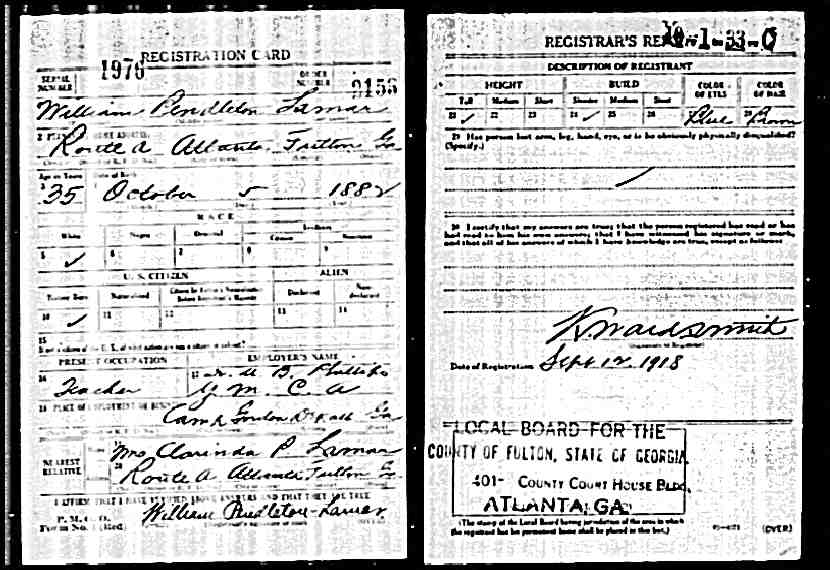 REGISTRATION CARD
SERIAL NUMBER 1976 ORDER NUMBER
William Pendleton Lamar
Route A Atlanta Fulton Ga
Age in Years Date of Birth
35 October 5 1882
RACE
White Negro Oriental Indian
Citizen
5 ✓ 6 7 8 9
U. S. CITIZEN ALIEN
Native Born Naturalized Declarant Non-declarant
10 ✓ 11 12 13 14
15
PRESENT OCCUPATION EMPLOYER'S NAME
16 Teacher 17 U. B. Phillips
Y. M. C. A
18 PLACE OF EMPLOYMENT OR BUSINESS
Camp Gordon Ga
NEAREST RELATIVE Name 19 Mrs Clarinda P. Lamar
20 Route A Atlanta Fulton Ga
I AFFIRM THAT I HAVE VERIFIED ABOVE ANSWERS AND THAT THEY ARE TRUE
P. M. G. O.
Form No. 1 (Red) William Pendleton Lamar
REGISTRAR'S REPORT
DESCRIPTION OF REGISTRANT
HEIGHT BUILD COLOR OF EYES COLOR OF HAIR
Tall Medium Short Slender Medium Stout
21 ✓ 22 23 24 ✓ 25 26 Blue Brown
29 Has person lost arm, leg, hand, eye, or is he obviously physically disqualified?
(Specify.)
30 I certify that my answers are true; that the person registered has read or has
had read to him his own answers; that I have witnessed his signature or mark,
and that all of his answers of which I have knowledge are true, except as follows:
(Signature of Registrar)
Date of Registration Sept 12 1918
LOCAL BOARD FOR THE
COUNTY OF FULTON, STATE OF GEORGIA
401- COUNTY COURT HOUSE BLDG.
ATLANTA, GA.
(The stamp of the Local Board having jurisdiction of the area in which
the registrant has his permanent home shall be placed in this box.)
(OVER)